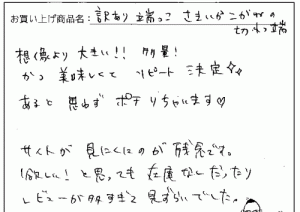 お買い上げ商品名：訳あり 端っこ さきいか こがねの
切れっ端
想像より 大きい!! 多量!
かつ 美味しくて リピート 決定
あると 思わず ポチりちゃいます♡
サイトが 見にくいのが 残念です。
欲しい! と思っても 在庫なしだったり
レビューが多すぎて 見ずらいでした。